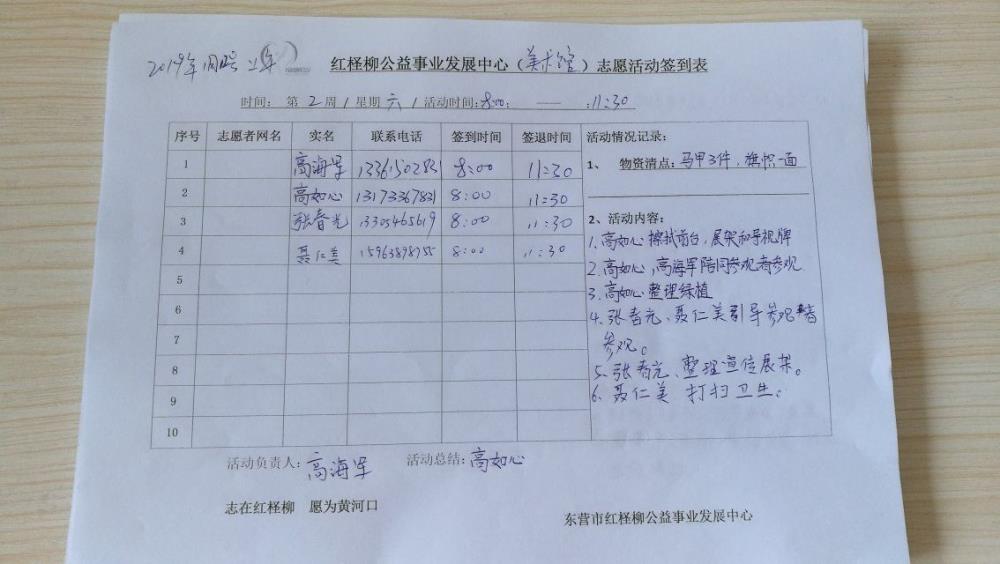 2019年
红柽柳公益事业发展中心（美术馆）志愿活动签到表
时间：第2周/星期六/活动时间:8:00: —— :11:30
序号 志愿者网名 实名 联系电话 签到时间 签退时间 活动情况记录：
1 高海军 8:00 11:30
1、物资清点：马甲3件，旗帜一面
2 高如心 13173367831 8:00 11:30
3 张春光 13305465619 8:00 11:30
2、活动内容：
4 聂仁美 15963898755 8:00 11:30
1.高如心擦拭前台，展架和导视牌
5
2.高如心，高海军陪同参观者参观
3.高如心整理绿植
6
4.张春光、聂仁美引导参观者
7
参观。
8
5.张春光、整理宣传展架。
9
6.聂仁美 打扫卫生.
10
活动负责人：高海军 活动总结：高如心
志在红柽柳 愿为黄河口
东营市红柽柳公益事业发展中心